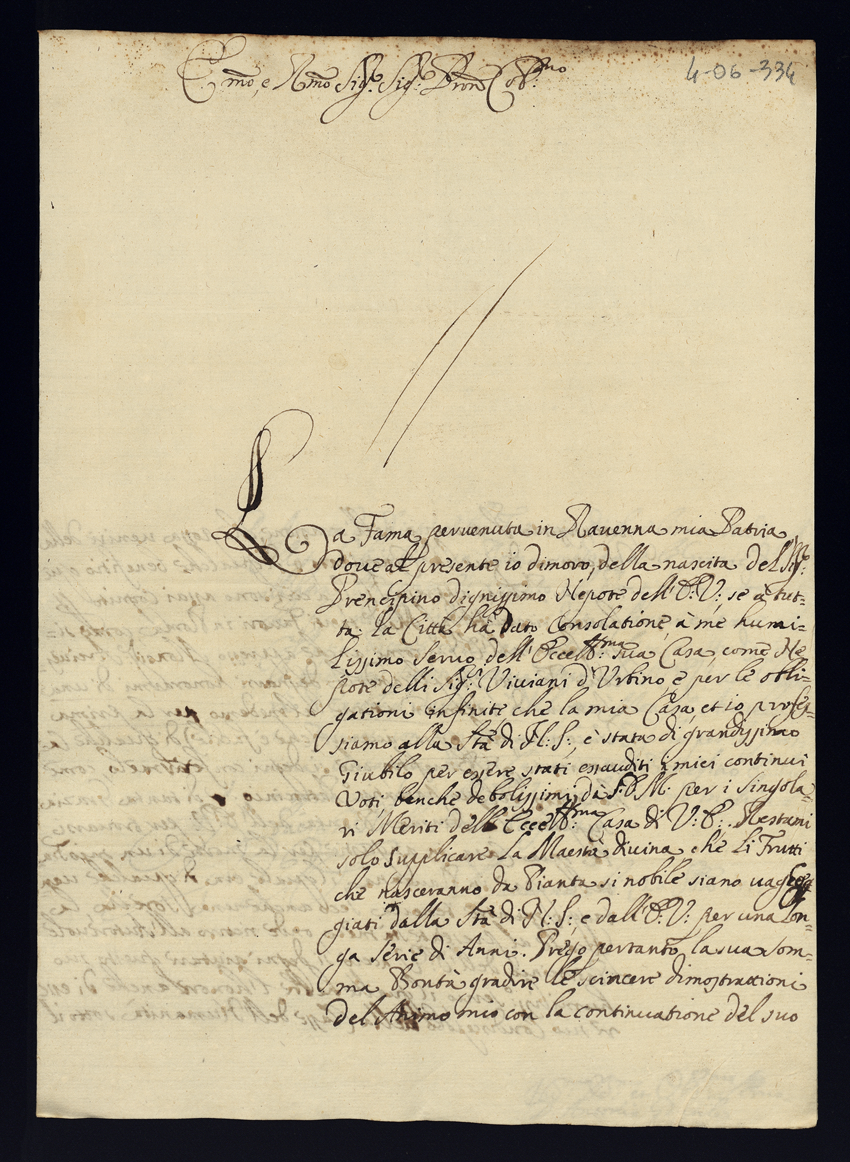 E.mo, e R.mo Sig.r Sig.r Pron Col.mo
4-06-334
La Fama pervenuta in Ravenna mia Patria
dove al presente io dimoro, della nascita del Sig.r
Prencipino dignissimo Nepote dell'E: V:, se à tut-
ta la Città hà dato Consolatione, à me humi-
lissimo servo dell'Eccell:ma sua Casa, come Ne
pote delli Sig.ri Viviani d'Urbino e per le obli-
gationi infinite che la mia Casa, et io profes-
siamo alla S.tà di N: S:, è stata di grandissimo
Giubilo per essere stati essauditi i miei continui
Voti, benche debolissimi, da S: D: M: per i singola-
ri Meriti dell'Eccell:ma Casa di V: E:. Restami
solo supplicare La Maestà divina che li Frutti
che nasceranno da Pianta si nobile siano vageg-
giati dalla S.tà di N: S:, e dall'E: V: per una lon-
ga serie di Anni. Prego pertanto la sua som-
ma Bontà gradire le scincere dimostrattioni
del Animo mio con la continuatione del suo